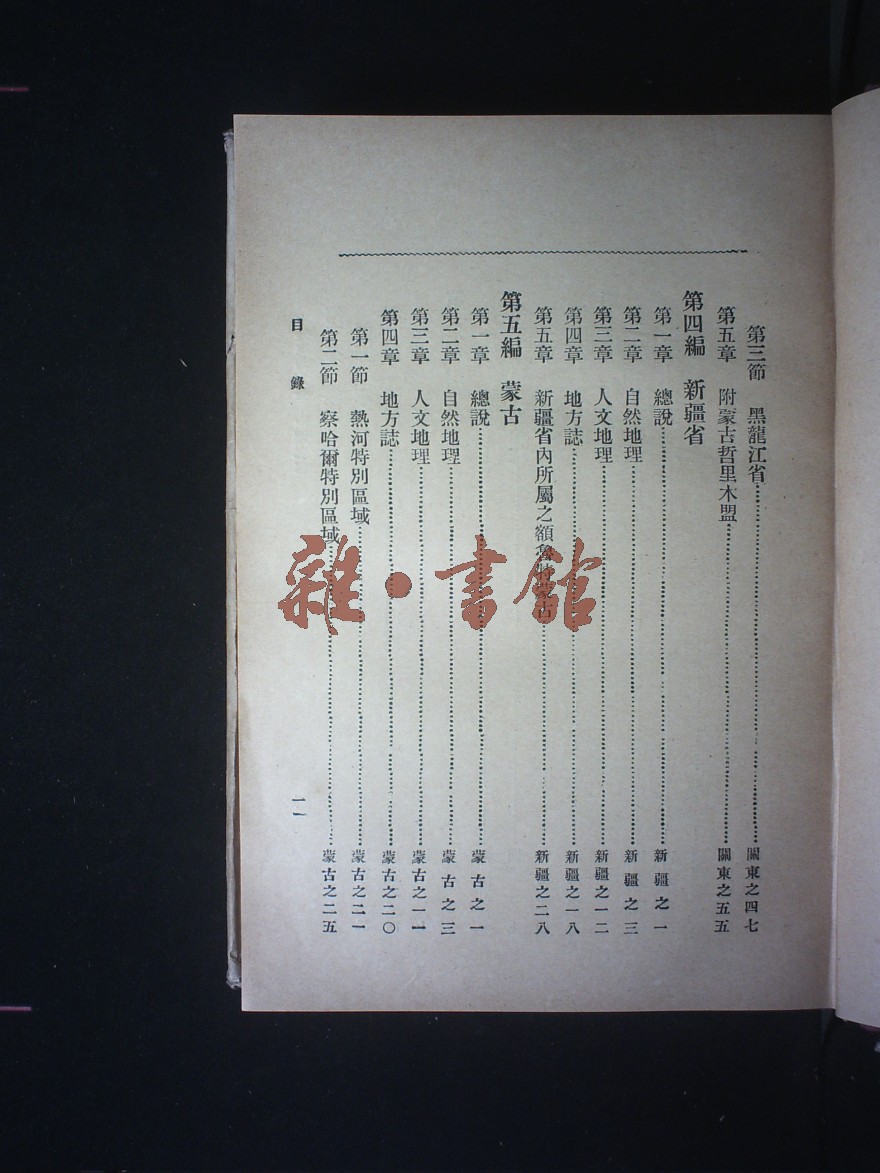 第三節 黑龍江省………關東之四七
第五章 附蒙古哲里木盟………關東之五五
第四編 新疆省
第一章 總說………新疆之一
第二章 自然地理………新疆之三
第三章 人文地理………新疆之一二
第四章 地方誌………新疆之一八
第五章 新疆省內所屬之額魯特蒙古………新疆之二八
第五編 蒙古
第一章 總說………蒙古之一
第二章 自然地理………蒙古之三
第三章 人文地理………蒙古之一一
第四章 地方誌………蒙古之二〇
第一節 熱河特別區域………蒙古之二一
第二節 察哈爾特別區域………蒙古之二五
目錄
一一
雜·書館